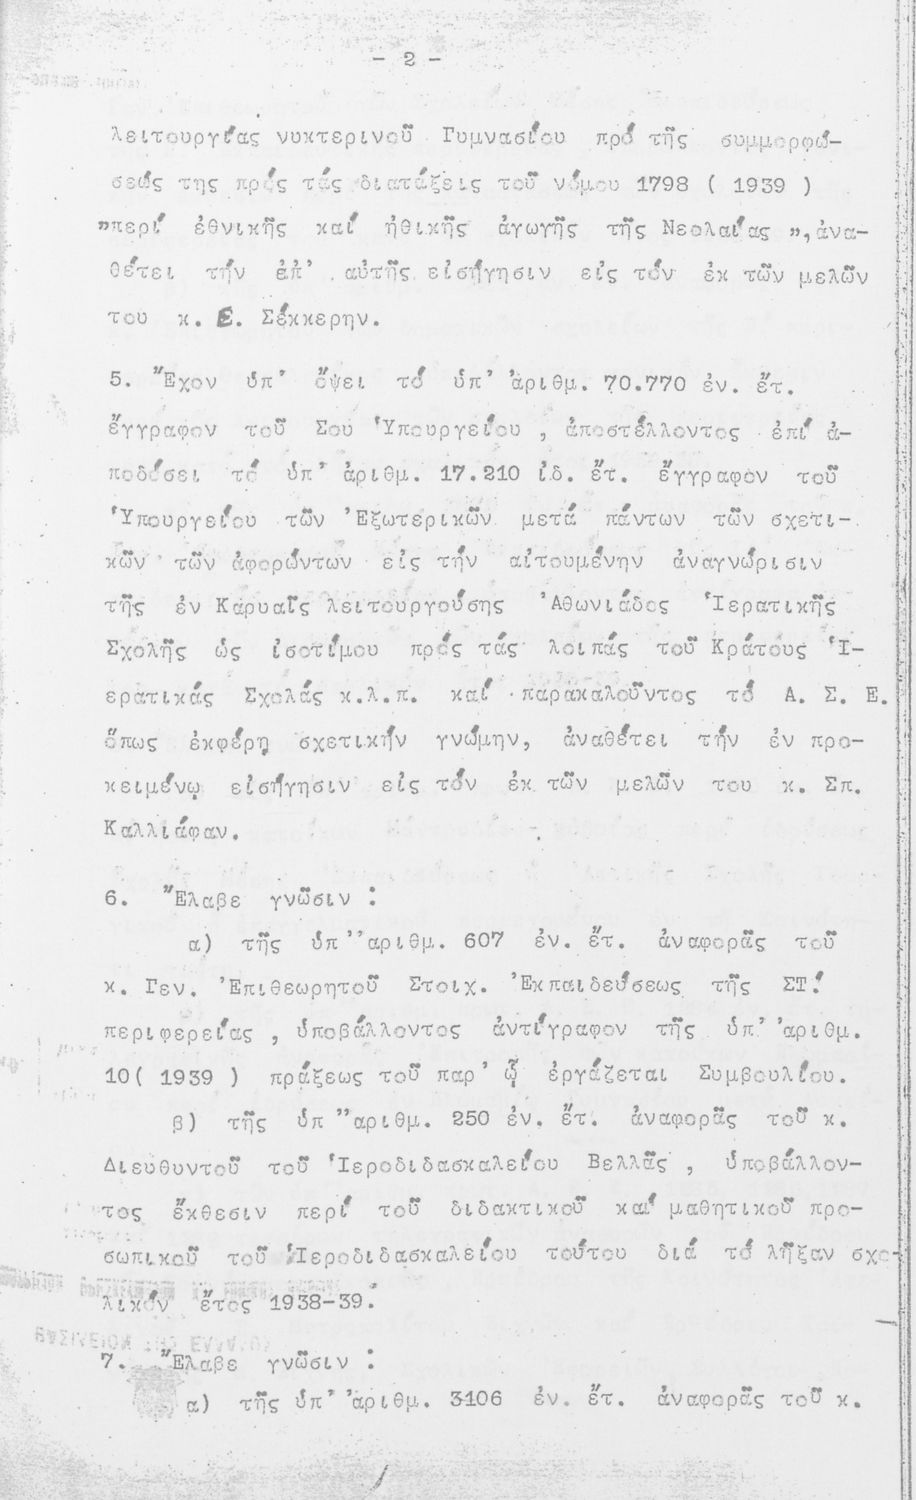 - 2 -
λειτουργίας νυκτερινοῦ Γυμνασίου πρό τῆς συμμορφώ-
σεώς της πρός τάς διατάξεις τοῦ νόμου 1798 ( 1939 )
"περί ἐθνικῆς καί ἠθικῆς ἀγωγῆς τῆς Νεολαίας ",ἀνα-
θέτει τήν ἐπ' αὐτῆς εἰσήγησιν εἰς τόν ἐκ τῶν μελῶν
του κ. Ε. Σέκκερην.
5. Ἔχον ὑπ' ὄψει τό ὑπ' ἀριθμ. 70.770 ἐν. ἔτ.
ἔγγραφον τοῦ Σου Ὑπουργείου , ἀποστέλλοντος ἐπί ἀ-
ποδόσει τό ὑπ' ἀριθμ. 17.210 ἰδ. ἔτ. ἔγγραφον τοῦ
Ὑπουργείου τῶν Ἐξωτερικῶν μετά πάντων τῶν σχετι-
κῶν τῶν ἀφορώντων εἰς τήν αἰτουμένην ἀναγνώρισιν
τῆς ἐν Καρυαῖς λειτουργούσης Ἀθωνιάδος Ἱερατικῆς
Σχολῆς ὡς ἰσοτίμου πρός τάς λοιπάς τοῦ Κράτους Ἱ-
ερατικάς Σχολάς κ.λ.π. καί παρακαλοῦντος τό Α. Σ. Ε.
ὅπως ἐκφέρῃ σχετικήν γνώμην, ἀναθέτει τήν ἐν προ-
κειμένῳ εἰσήγησιν εἰς τόν ἐκ τῶν μελῶν του κ. Σπ.
Καλλιάφαν.
6. Ἔλαβε γνῶσιν :
α) τῆς ὑπ' ἀριθμ. 607 ἐν. ἔτ. ἀναφορᾶς τοῦ
κ. Γεν. Ἐπιθεωρητοῦ Στοιχ. Ἐκπαιδεύσεως τῆς ΣΤ!
περιφερείας , ὑποβάλλοντος ἀντίγραφον τῆς ὑπ' ἀριθμ.
10( 1939 ) πράξεως τοῦ παρ' ᾧ ἐργάζεται Συμβουλίου.
β) τῆς ὑπ' ἀριθμ. 250 ἐν. ἔτ. ἀναφορᾶς τοῦ κ.
Διευθυντοῦ τοῦ Ἱεροδιδασκαλείου Βελλᾶς , ὑποβάλλον-
τος ἔκθεσιν περί τοῦ διδακτικοῦ καί μαθητικοῦ προ-
σωπικοῦ τοῦ Ἱεροδιδασκαλείου τούτου διά τό λῆξαν σχο-
λικόν ἔτος 1938-39.
7. Ἔλαβε γνῶσιν :
α) τῆς ὑπ' ἀριθμ. 3106 ἐν. ἔτ. ἀναφορᾶς τοῦ κ.